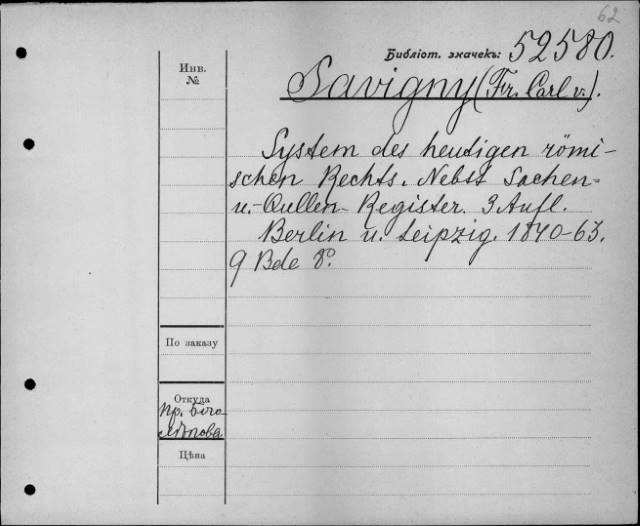 62
Библіот. значекъ: 52580.
Инв.
№
Savigny (Fr. Carl v.).
System des heutigen römi-
schen Rechts. Nebst Sachen-
u.-Qullen-Register. 3 Aufl.
Berlin u. Leipzig. 1840-63.
9 Bde 8º.
По заказу
Откуда
Пр. Бого-
лѣпова
Цѣна